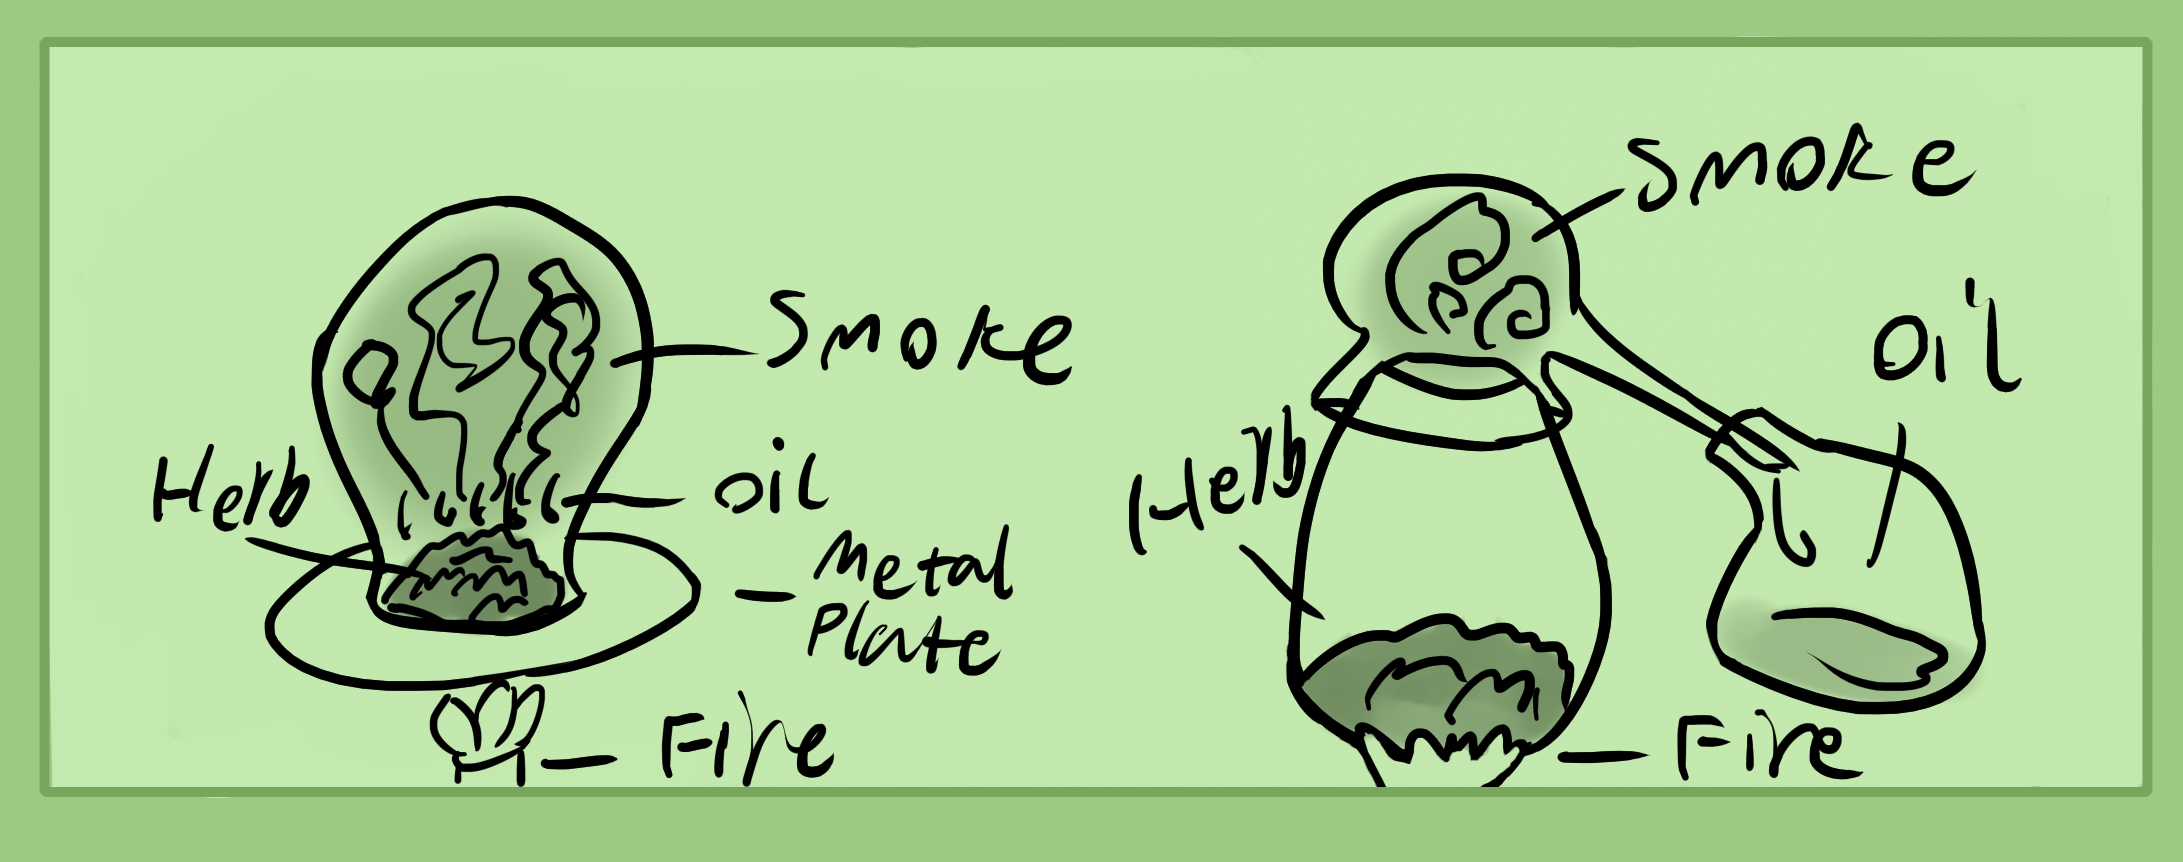 Smoke
Herb
oil
Metal
Plate
Fire
Smoke
oil
Herb
Fire